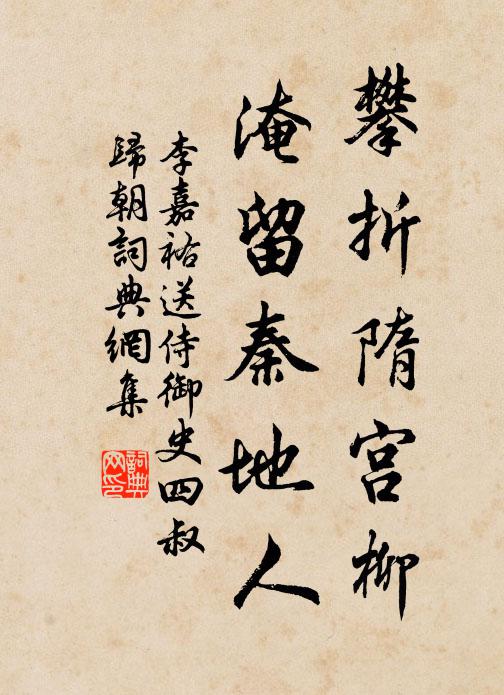 攀折隋宫柳
淹留秦地人
李嘉祐送侍御史四叔
歸朝詞典網集
詞典网印